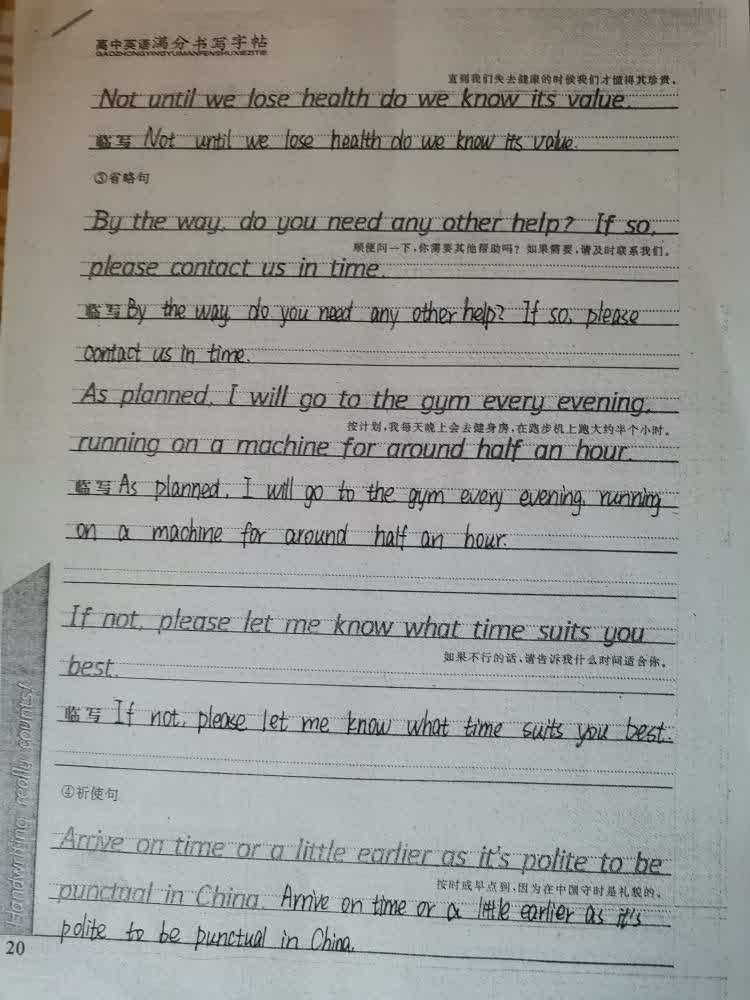 高中英语满分书写字帖
GAOZHONGYINGYUMANFENSHUXIEZITIE
直到我们失去健康的时候我们才懂得其珍贵。
Not until we lose health do we know its value.
临写 Not until we lose health do we know its value.
③省略句
By the way, do you need any other help? If so,
顺便问一下,你需要其他帮助吗?如果需要,请及时联系我们。
please contact us in time.
临写 By the way, do you need any other help? If so, please
contact us in time.
As planned, I will go to the gym every evening,
按计划,我每天晚上会去健身房,在跑步机上跑大约半个小时。
running on a machine for around half an hour.
临写 As planned, I will go to the gym every evening, running
on a machine for around half an hour.
If not, please let me know what time suits you
如果不行的话,请告诉我什么时间适合你。
best.
临写 If not, please let me know what time suits you best.
④祈使句
Arrive on time or a little earlier as it's polite to be
按时或早点到,因为在中国守时是礼貌的。
punctual in China. Arrive on time or a little earlier as it's
polite to be punctual in China.
Handwriting really counts!
20